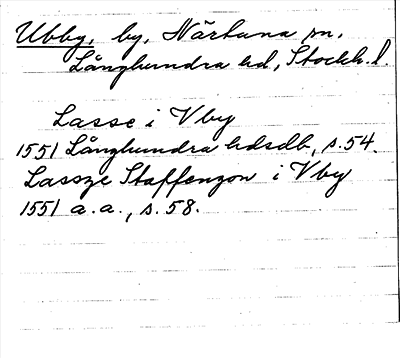 Ubby, by, Närtuna sn,
Långhundra hd, Stockh. l.
Lasse i Vby
1551 Långhundra hdsdb, s. 54.
Lassze Staffenzon i Vby
1551 a. a., s. 58.